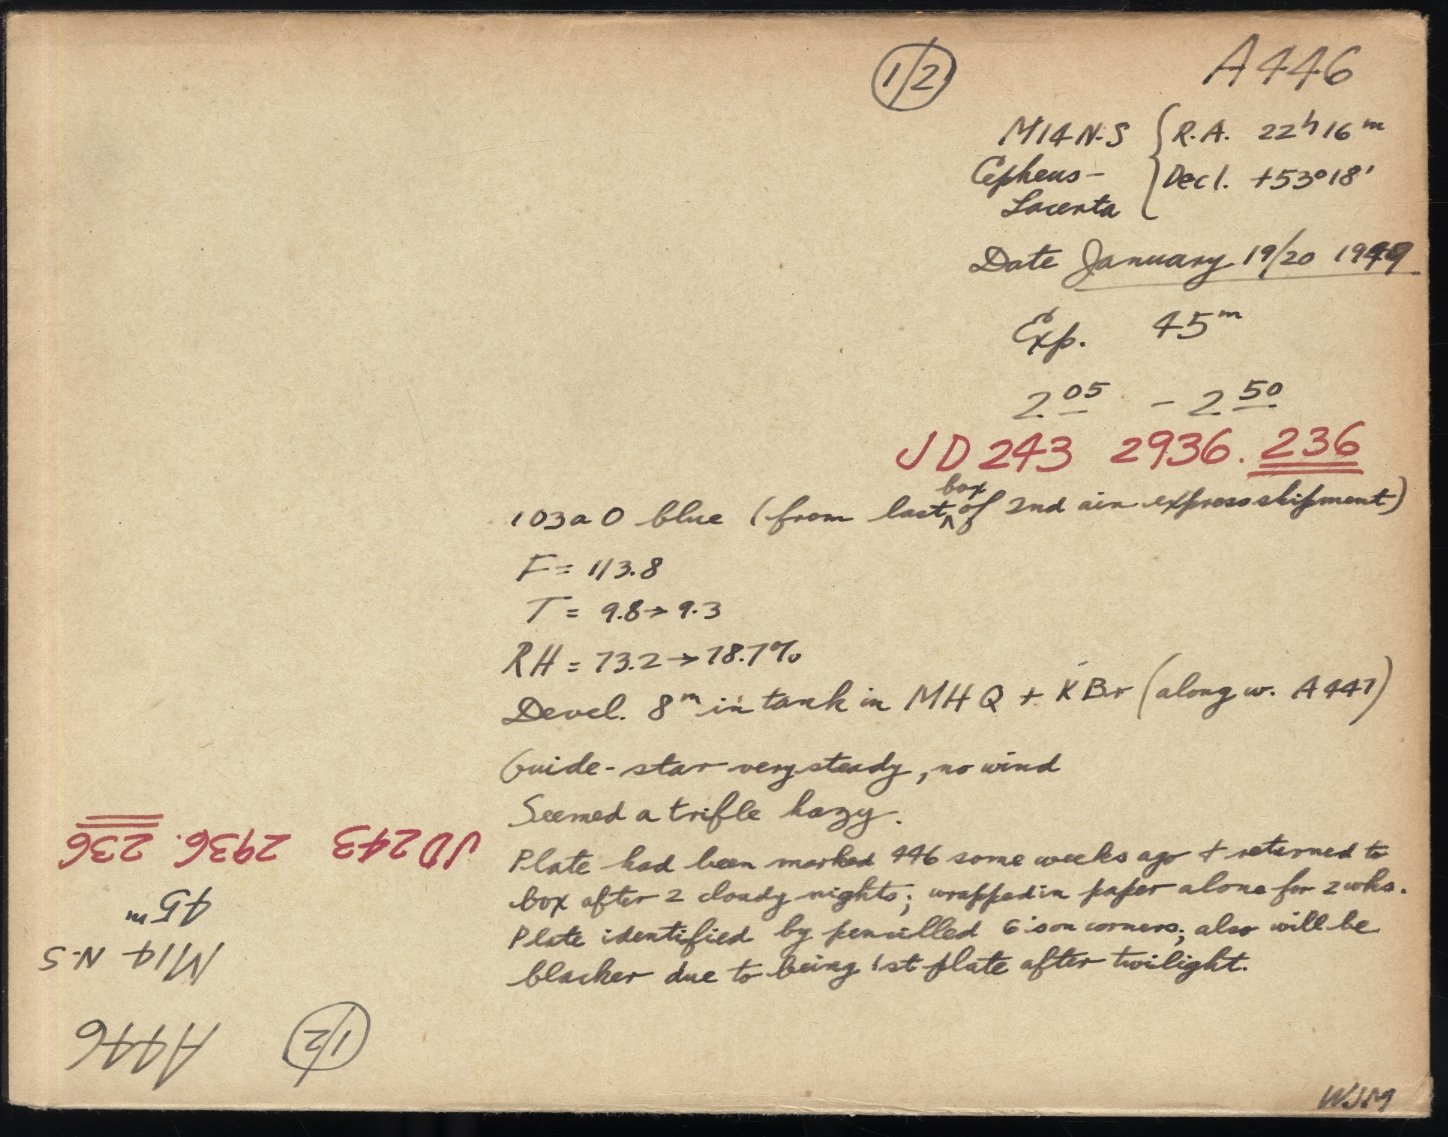 1/2
A446
M14 N-S { R.A. 22h 16m
Cepheus- Decl. +53°18'
Lacerta
Date January 19/20 1949
Exp. 45m
2 05 - 2 50
JD 243 2936.236
103a O blue (from last box of 2nd air express shipment)
F = 113.8
T = 9.8 → 9.3
RH = 73.2 → 78.7%
Devel. 8m in tank in MHQ + KBr (along w. A447)
Guide-star very steady, no wind
Seemed a trifle hazy.
Plate had been marked 446 some weeks ago + returned to
box after 2 cloudy nights; wrapped in paper alone for 2 wks.
Plate identified by pencilled 6's on corners; also will be
blacker due to being 1st plate after twilight.
WJM
1/2
A446
M14 N-S
45m
JD 243 2936.236